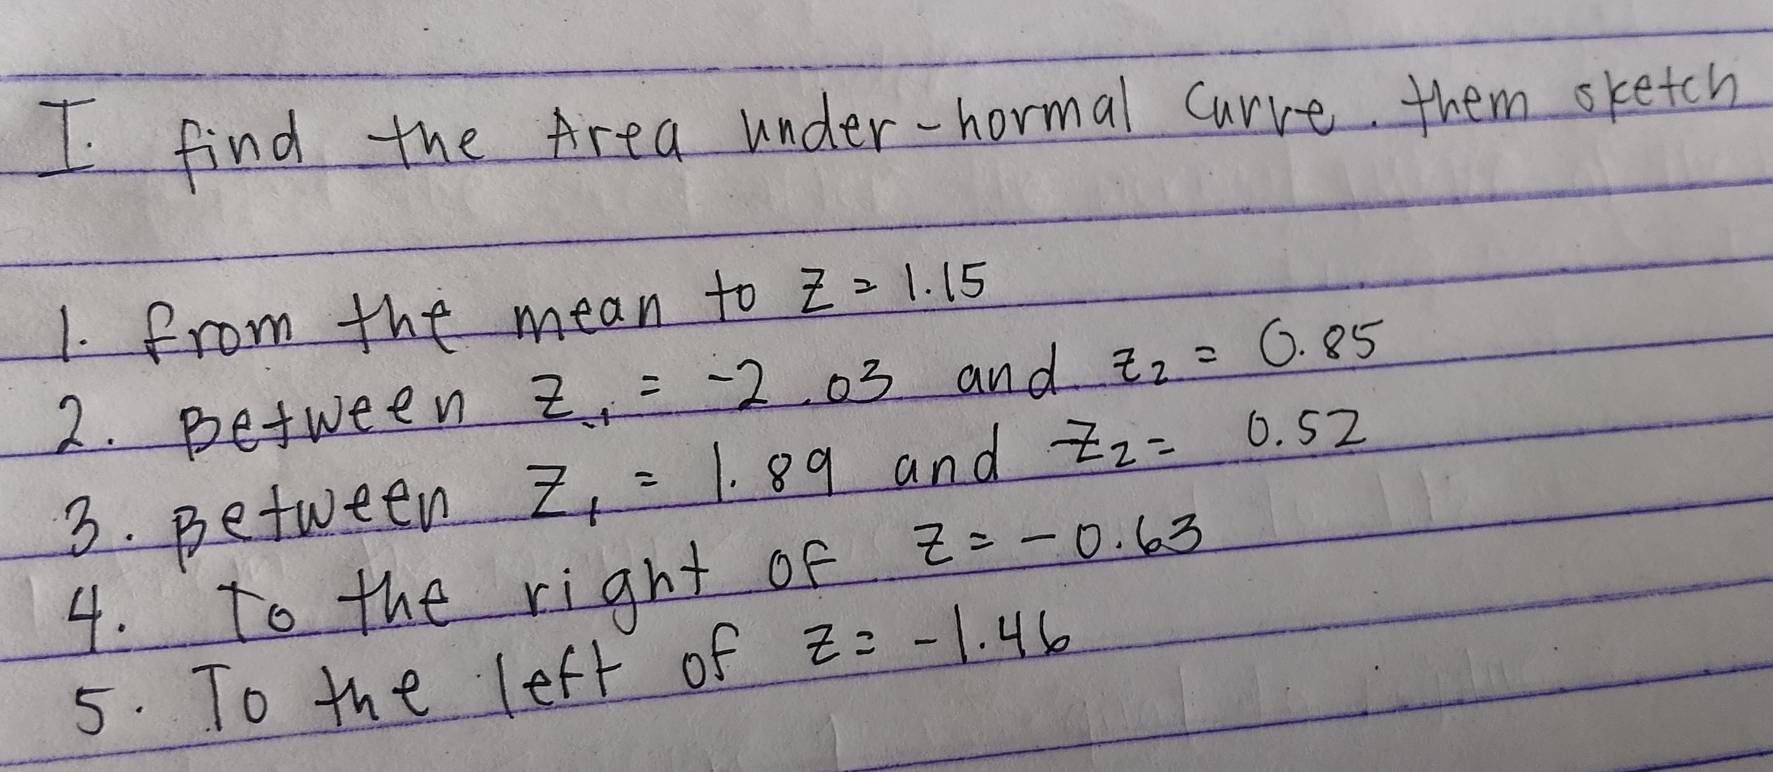 I. find the Area under-normal curve. them sketch
1. from the mean to z = 1.15
2. Between z₁ = -2.03 and z₂ = 0.85
3. Between z₁ = 1.89 and z₂ = 0.52
4. To the right of z = -0.63
5. To the left of z = -1.46